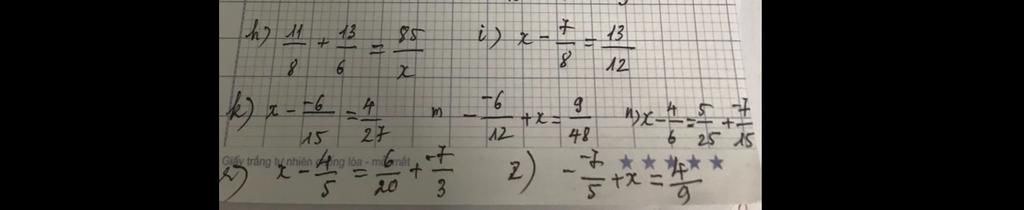 h) 11/8 + 13/6 = 85/x i) x - 7/8 = 13/12
k) x - -6/15 = 4/27 m - -6/12 + x = 9/48 n) x - 4/6 = 5/25 + -7/15
Giấy trắng tự nhiên chống lóa - mỏi mắt
x - 4/5 = 6/20 + -7/3 z) - -7/5 + x = 4/9